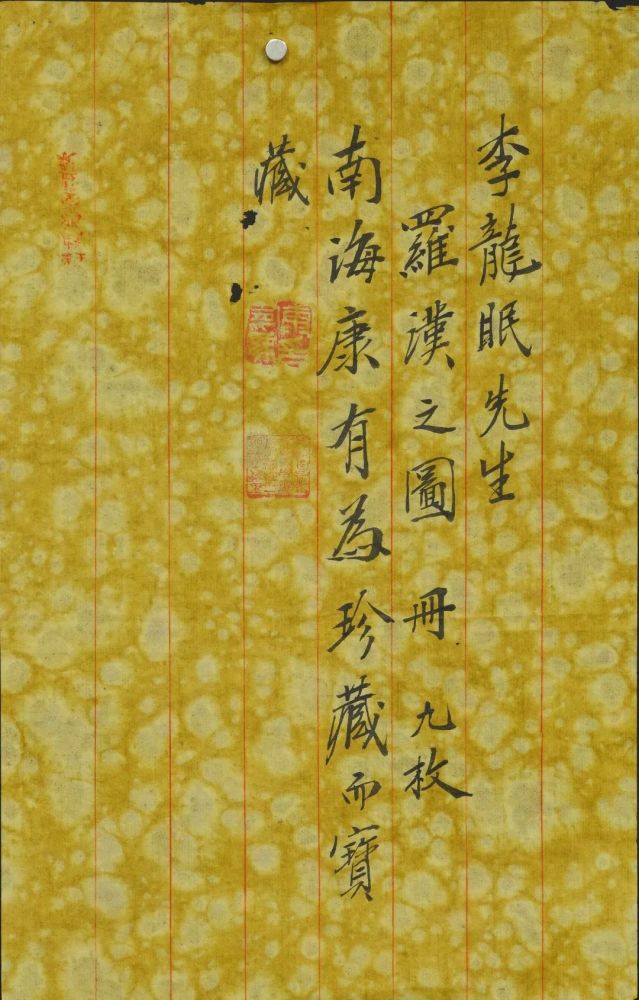 李龍眠先生
羅漢之圖冊九枚
南海康有為珍藏而寶
藏